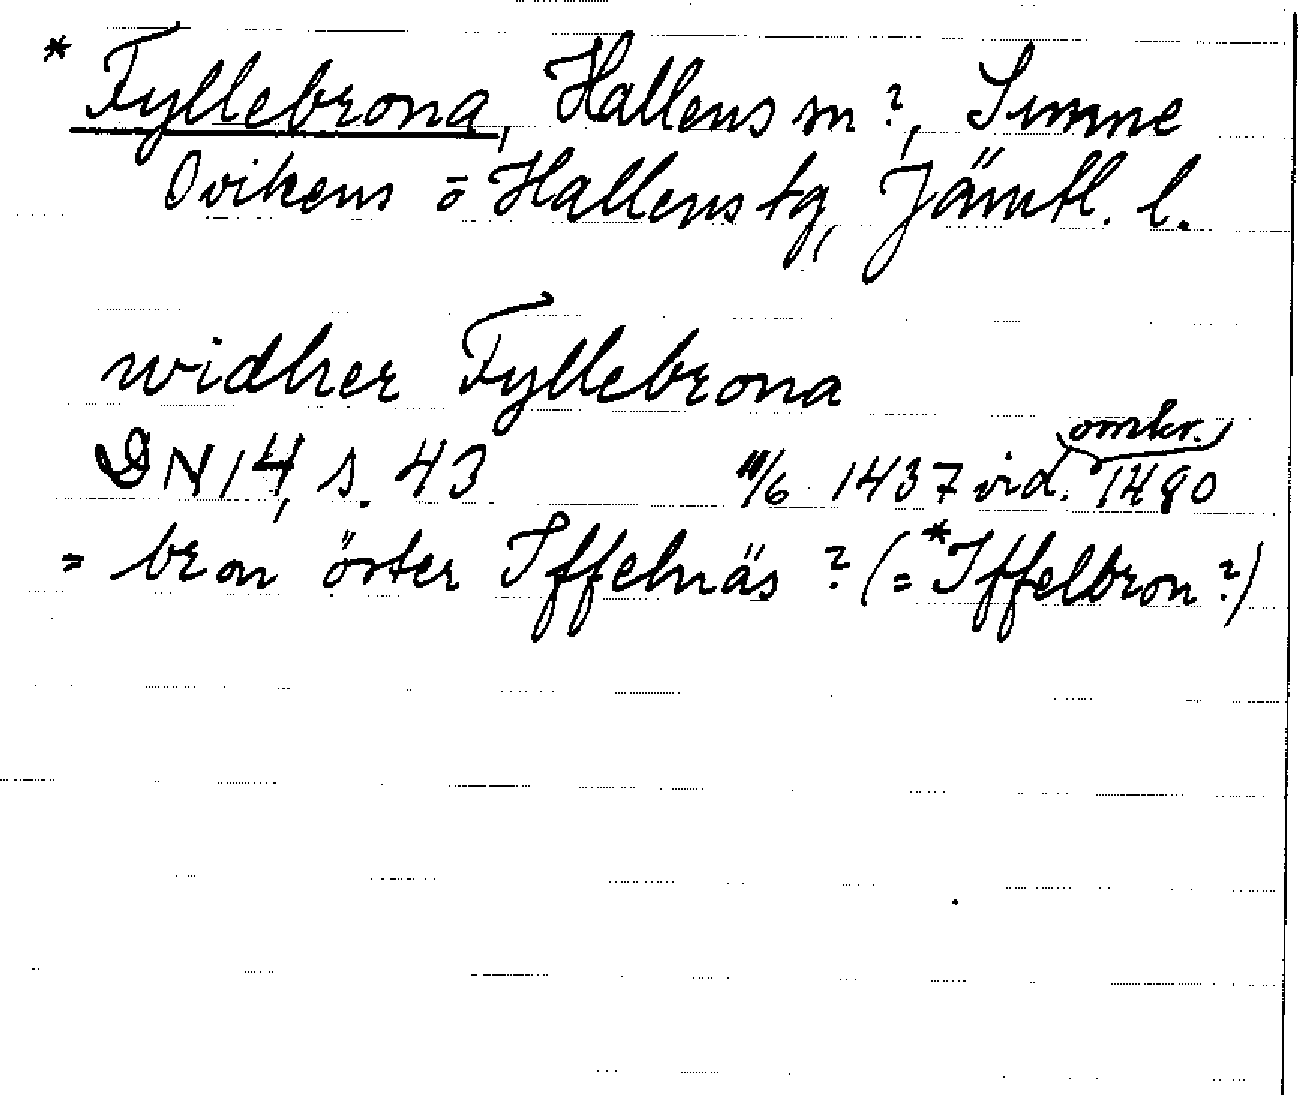 * Fyllebrona, Hallens sn?, Sunne
Ovikens o Hallens tg, Jämtl. l.
widher Fyllebrona
DN 14, s. 43 11/6 1437 vid. omkr. 1480
= bron öster Iffelnäs? (= *Iffelbron?)